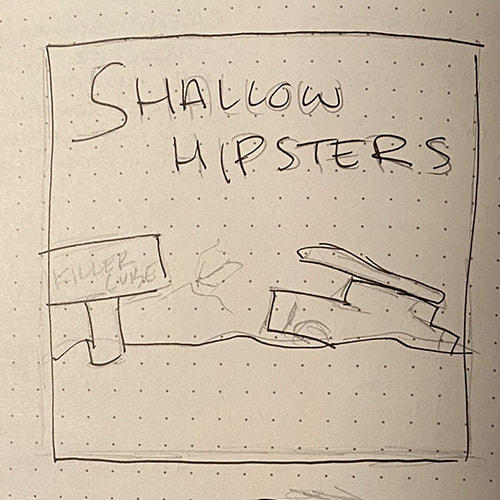 SHALLOW
HIPSTERS
KILLER
CUBE